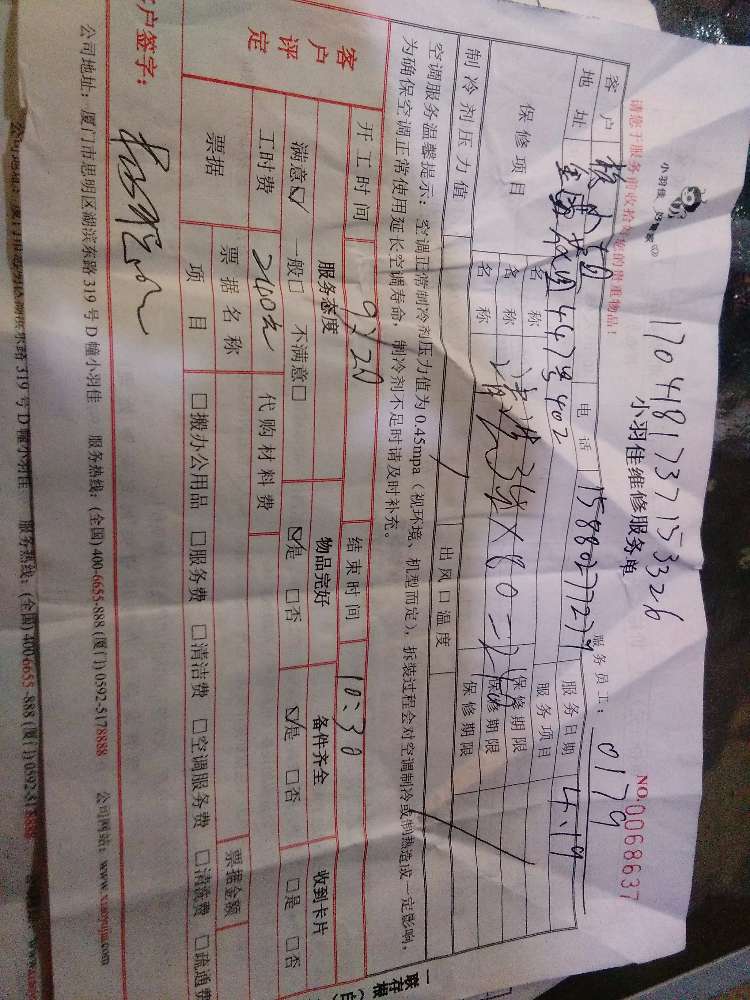 小羽佳 好管家
17048173715 3326
小羽佳维修服务单
NO.0068637
请您于服务前收拾好您的贵重物品!
服务员工: 0179
客户
电话 15880277279
服务日期 4.19
地址 447号402
服务项目
保修项目
名称 清洗3域×80=240 保修期限
名称 保修期限
名称 保修期限
制冷剂压力值
出风口温度
空调服务温馨提示:空调正常制冷剂压力值为0.45mpa(视环境、机型而定),拆装过程会对空调制冷或制热造成一定影响,
为确保空调正常使用延长空调寿命,制冷剂不足时请及时补充。
开工时间 9:20 结束时间 10:30
客户评定
服务态度 物品完好 备件齐全 收到卡片
满意☑ 一般□ 不满意□ ☑是 □否 ☑是 □否 □是 □否
工时费 240元 代购材料费
票据 票据名称 票据金额
项目 □搬办公用品 □服务费 □清洁费 □空调服务费 □清洗费 □疏通费
客户签字:
公司地址:厦门市思明区湖滨东路319号D幢小羽佳 服务热线:(全国)400-6655-888 (厦门)0592-5178888 公司网站:www.xiaoyujia.com
公司地址:厦门市思明区湖滨东路319号D幢小羽佳 服务热线:(全国)400-6655-888 (厦门)0592-5178888
一联存根(白)